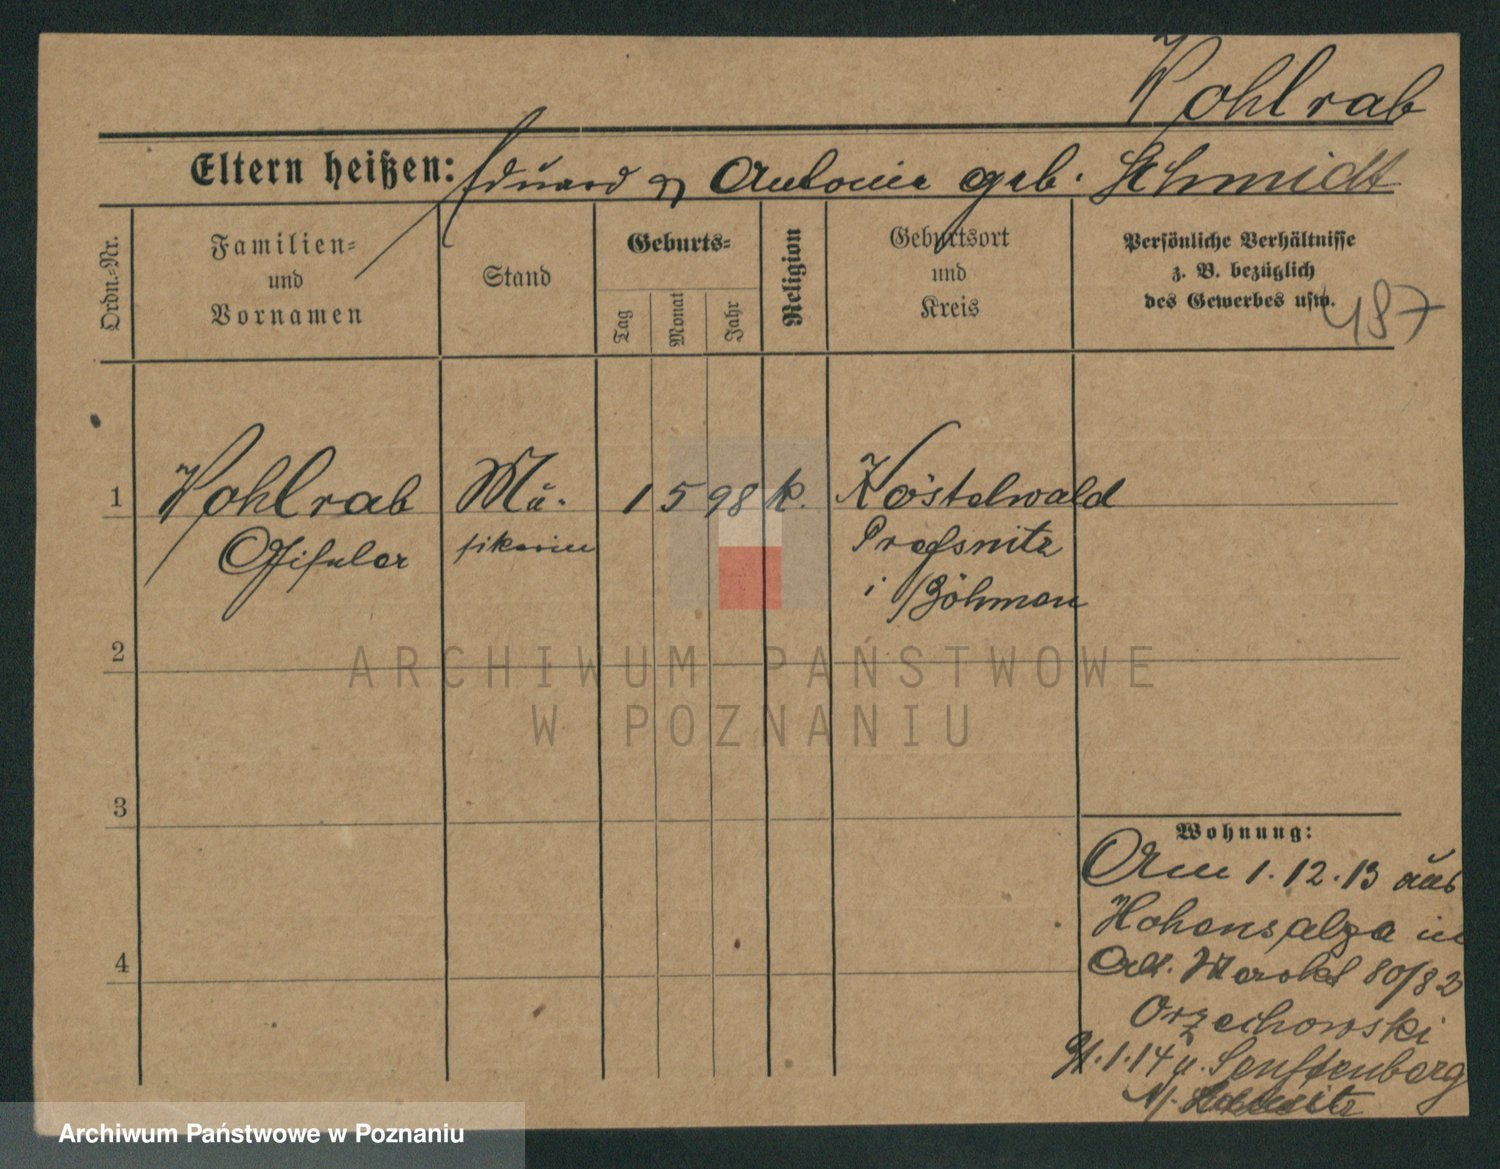 Wohlrab
Eltern heißen: Eduard & Antonie geb. Schmidt
Ordn.-Nr.
Familien-
und
Vornamen
Stand
Geburts-
Tag
Monat
Jahr
Religion
Geburtsort
und
Kreis
Persönliche Verhältnisse
z. B. bezüglich
des Gewerbes usw.
487
1 Wohlrab Mu- 1 5 98 k. Köstelwald
Gisular sikerin Pressnitz
i Böhmen
2
3
4
Wohnung:
Am 1.12.13 aus
Hohensalza in
Alt. Markt 80/82
Orzechowski
1.14 n. Senftenberg
ARCHIWUM PAŃSTWOWE
W POZNANIU
Archiwum Państwowe w Poznaniu